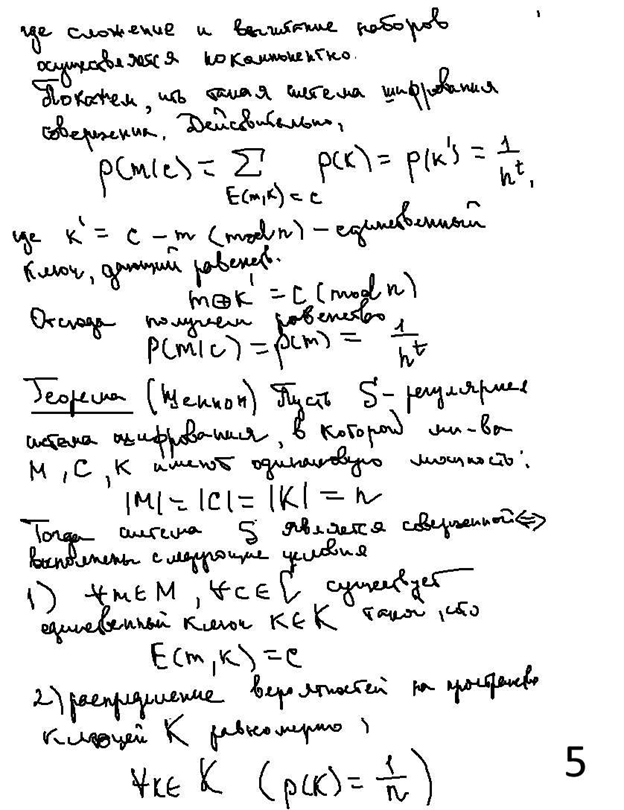 где сложение и вычитание наборов
осуществляется покомпонентно.
Покажем, что такая система шифрования
совершенна. Действительно,
p(m/c) = ∑ p(k) = p(k') = 1/n^t,
E(m,k) = c
где k' = c - m (mod n) - единственный
ключ, дающий равенств.
m ⊕ k' = c (mod n)
Отсюда получаем равенство
P(m/c) = p(m) = 1/n^t
Теорема (Шеннон) Пусть S - регулярная
система шифрования, в которой мн-ва
M, C, K имеют одинаковую мощность:
|M| = |C| = |K| = n
Тогда система S является совершенной <=>
выполнены следующие условия
1) ∀m∈M, ∀c∈C существует
единственный ключ k∈K такой, что
E(m,k) = c
2) распределение вероятностей на пространстве
ключей K равномерно,
∀k∈K (p(k) = 1/n)
5